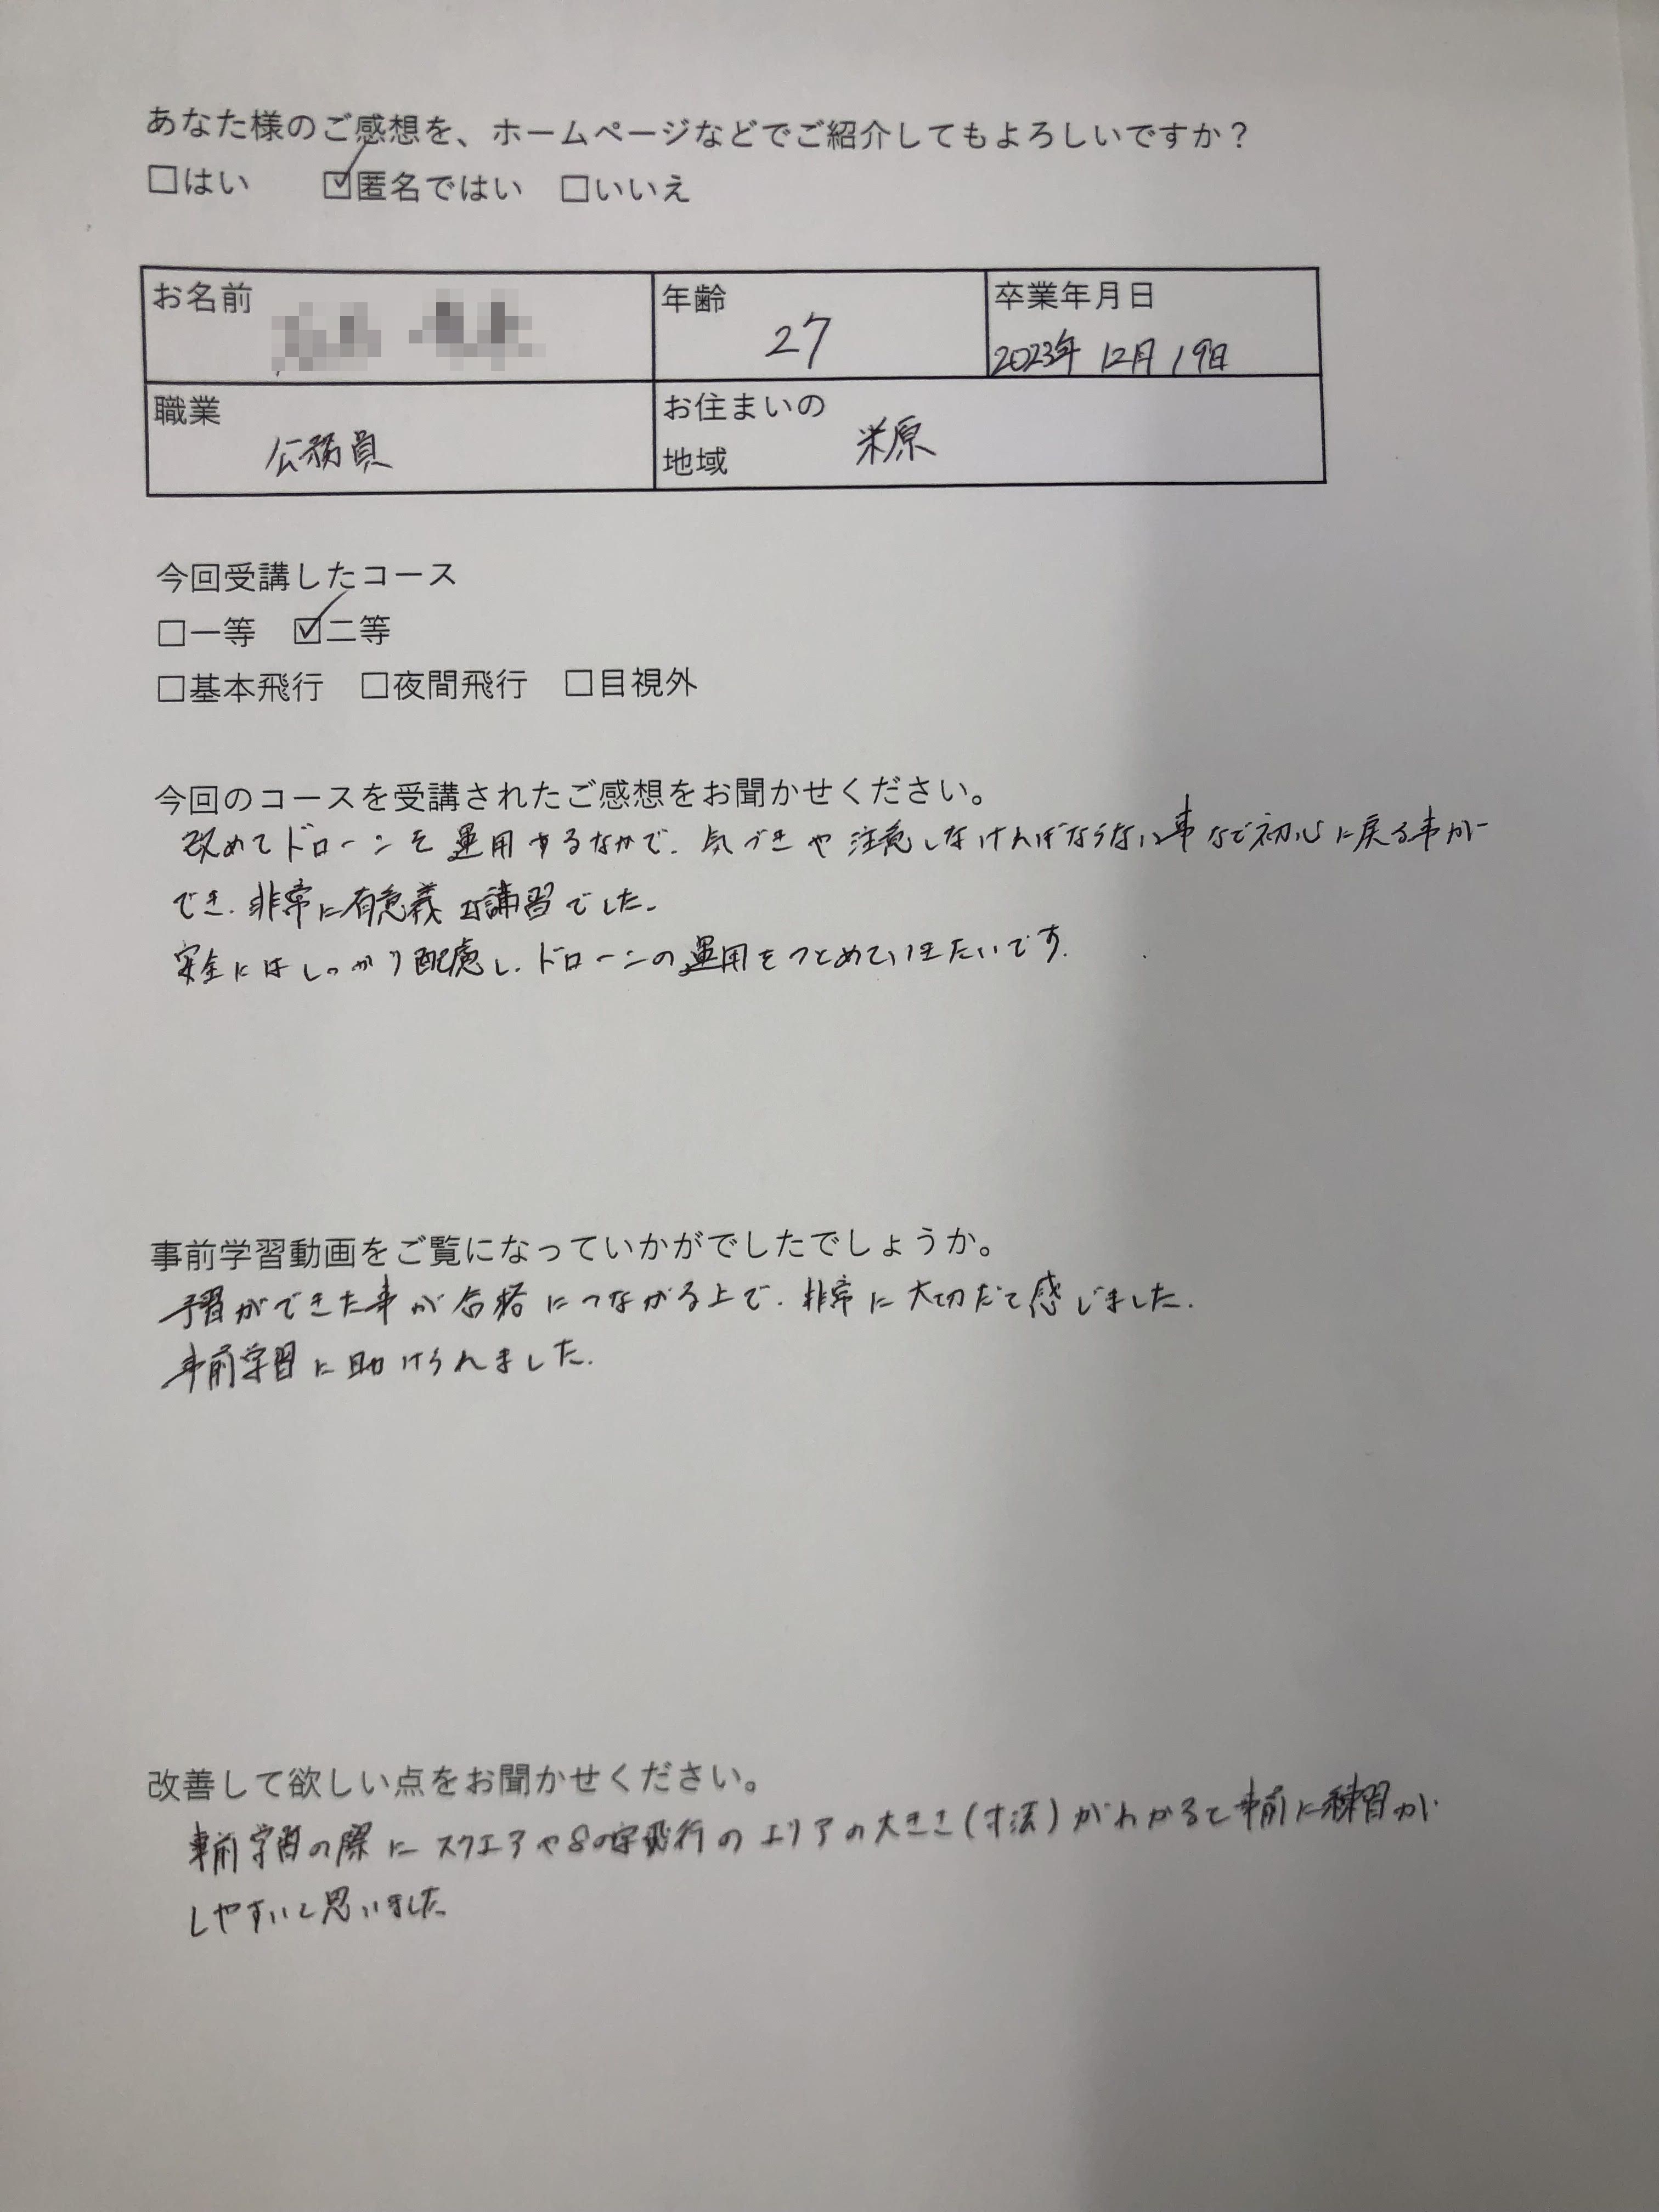 あなた様のご感想を、ホームページなどでご紹介してもよろしいですか？
□はい ☑匿名ではい □いいえ
お名前
年齢 27
卒業年月日 2023年 12月 19日
職業 公務員
お住まいの
地域 米原
今回受講したコース
□一等 ☑二等
□基本飛行 □夜間飛行 □目視外
今回のコースを受講されたご感想をお聞かせください。
改めてドローンを運用するなかで、気づきや注意しなければならない事など初心に戻る事が
でき、非常に有意義な講習でした。
安全にはしっかり配慮し、ドローンの運用をつとめていきたいです。
事前学習動画をご覧になっていかがでしたでしょうか。
予習ができた事が合格につながる上で、非常に大切だと感じました。
事前学習に助けられました。
改善して欲しい点をお聞かせください。
事前学習の際にスクエアや8の字飛行のエリアの大きさ(寸法)がわかると事前に練習が
しやすいと思いました